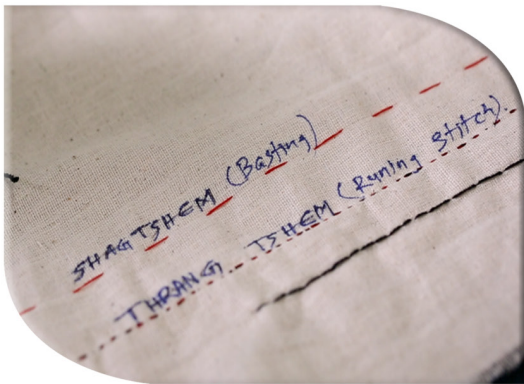 SHAGTSHEM (Basting)
THRANG TSHEM (Runing Stitch).